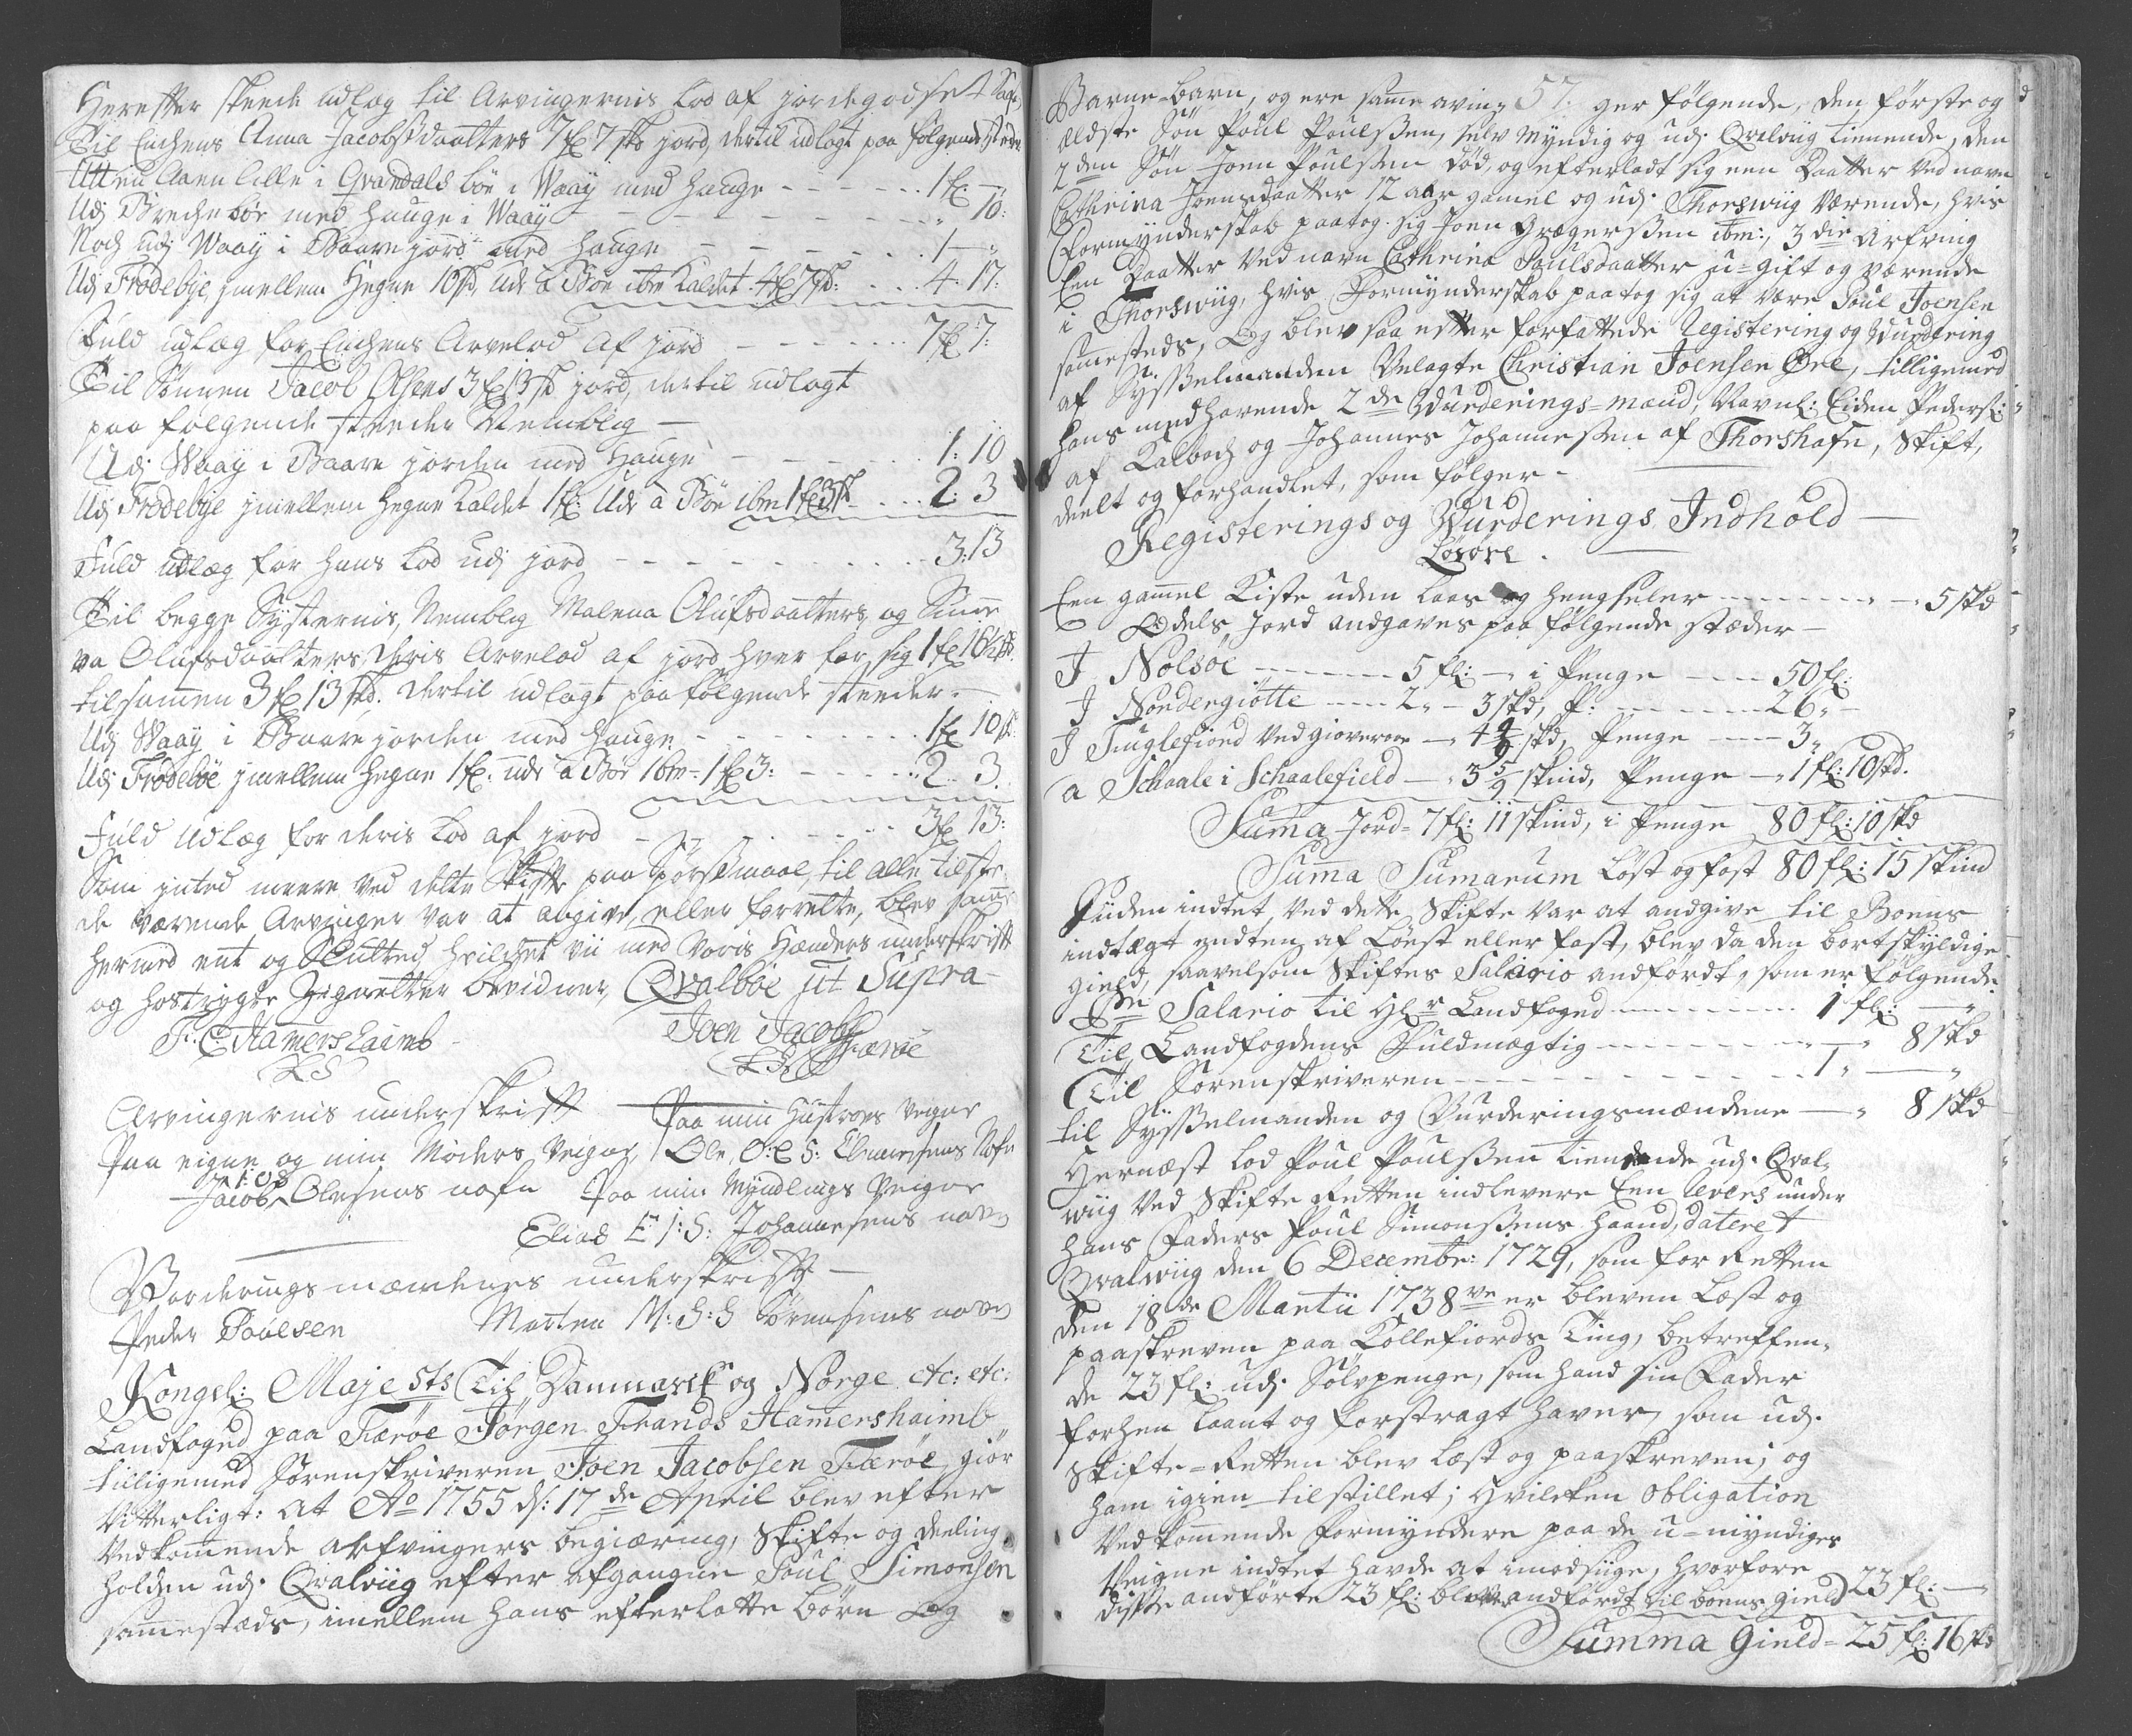 Herefter skeede udlæg til Arvingernis Lod af jordegodset Sage,
Til Enchens Anna Jacobsdaatters 7 fl 7 skd jord, dertil udlagt paa følgende steder
Utten Aaen lille i Qvandals bøe i Waaÿ med hauge - - - - - 1 fl. —
Udj Brechebøe med hauge i Waaÿ - - - - - „ 10:
Noch udj Waaÿ i Baarejord med hauge - - - - - 1 — „
Udj Frodebÿe jmellem Hegne 10 skd, Ude à Bøe ibm Kaldet 4 fl 7 skd: - - - 4. 17.
Fuld udlæg for Enchens Arvelod af jord - - - - - 7 fl 7:
Til Sønnen Jacob Olsens 3 fl 13 skd jord, dertil udlagt
paa følgende steeder Nemblig —
Udj Waaÿ i Baare jorden med Hauge - - - - 1: 10
Udj Frodebÿe jmellem hegne Kaldet 1 fl: Ude à Bøe ibm 1 fl 3 skd - - - 2: 3
Fuld udlæg for hans Lod udj jord - - - - - 3: 13
Til begge Sÿsternis, Nemblig Malena Olufsdaatters, og Sunne
va Olufsdaatters deris Arvelod af jord hver for sig 1 fl 16½ skd.
tilsamen 3 fl 13 skd. dertil udlagt paa følgende steeder. —
Udj Waaÿ i Baare jorden med hauge - - - - - 1 fl 10 skd.
Udj Frodebøe jmellem hegne 1 fl: ude à Bøe ibm = 1 fl 3: - - - - 2. 3.
Fuld Udlæg for deris Lod af jord - - - - - 3 fl 13:
Som jnted meere ved dette Skifte paa Spørsmaal, til alle tilste„
de værende Arvinger var at angive, eller forrette, blev samme
hermed ent og Slutted hvilchet vii med Voris Hænders underskrift
og hostrygte Zigneetter bevidner, Qvalbøe ut Supra —
J: F Hamershaimb Joen Jacobs Færøe
LS LS
Arvingernis underskrift — Paa min Hustroes Veigne
Paa eigne og min Moders Veigne, Ole O: C S: Clemensens Nafn
Jacob I: O S Olesens nafn Paa min Myndlings Veigne
Elias E I: S: Johannesens navn
Vorderings mændenes underskrift —
Peder Poulsen Morten M: S: S Sørensens navn
Kongel: Maje sts Til Danmarck og Norge etc: etc:
Landfoged paa Færøe Jørgen Frands Hamershaimb
tilligemed Sorenskriveren Joen Jacobsen Færøe, giør
Vitterligt: at Ao 1755 d: 17 de April blev efter
Vedkommende arfvingers begiæring, Skifte og deeling
holden udj. Qvalviig efter afgangne Poul Simonsen
sammestæds, imellem hans efterlatte børn og
57.
Barne-barn, og ere samme arvin„ ger følgende, den første og
ældste Søn Poul Poulssen, selv Myndig og udj. Qvalviig tienende, den
2 den Søn Joen Poulssen død, og efterladt sig een Daatter ved navn
Cathrina Joensdaatter 12 aar gamel og udj. Thorswiig Værende, hvis
formynderskab paatog sig Joen Grægerssen ibm:, 3 die Arfving
Een Daatter ved navn Cathrina Poulsdaatter u-gift og værende
i Thorswiig, hvis Formynderskab paatog sig at være Poul Joensen
sammesteds, Og blev saa efter forfattede Registering og Vurdering
af Sysselmanden Velagte Christian Joensen Øre, tilligemed
hans medhavende 2 de Wurderings-mænd, Navnl: Eiden Peders:
af Kalback og Johannes Johannessen af Thorshafn, Skift,
deelt og forhandlet, som følger.
Registerings og Vurderings Indhold —
Løsøre.
Een gammel Kiste uden laas og hengseler - - - - - - „ 5 skd
Odels Jord andgaves paa følgende stæder —
I Nolsøe - - - - 5 fl: — i Penge - - - 50 fl:
I Nordergiøtte - - - 2„ — 3 skd, P: - - - - 26„ —
I Funglefiord ved gioveraae —„ 4 4/9 skd, Penge - - - 3„
a Schaale i Schaalefield —„ 3 5/9 skind, Penge —„ 1 fl: 10 skd.
Suma Jord = 7 fl: 11 skind, i Penge 80 fl: 10 skd
Summa Sumarum Løst og fast 80 fl: 15 skind
Siiden indtet ved dette Skifte var at andgive til Boens
indtægt endten af Løest eller fast, blev da den bortskyldige
gield, saavelsom Skiftes Salario andfördt, som er følgende
De Salario til Hr Landfoged - - - - - - 1 fl: — „
Til Landfogdens Fuldmægtig - - - - - - „ — „ 8 skd
Til Sorenskriveren - - - - - - 1 „ — „
til Sysselmanden og Vurderingsmændene — „ 8 skd
Hernæst lod Poul Poulssen tienende udj. Qval„
wiig ved Skifte Retten indlevere Een Revers under
hans Faders Poul Simonssens haand, dateret
Qvalwiig den 6 Decembr: 1729, som for Retten
den 18 de Martii 1738 ve er bleven Læst og
paaskreven paa Kollefiords Ting, betreffen„
de 23 fl: udj. Sølvpenge, som hand sin Fader
forhen laant og forstragt haver, som udj.
Skifte-Retten blev læst og paaskreven; og
ham igien tilstillet; Hvilcken obligation
Vedkommende formyndere paa de u-myndiges
Veigne indtet havde at imodsiige, hvorfore
disse andförte 23 fl: blev andfördt til boens gield 23 fl: —
Summa Gield = 25 fl: 16 skd